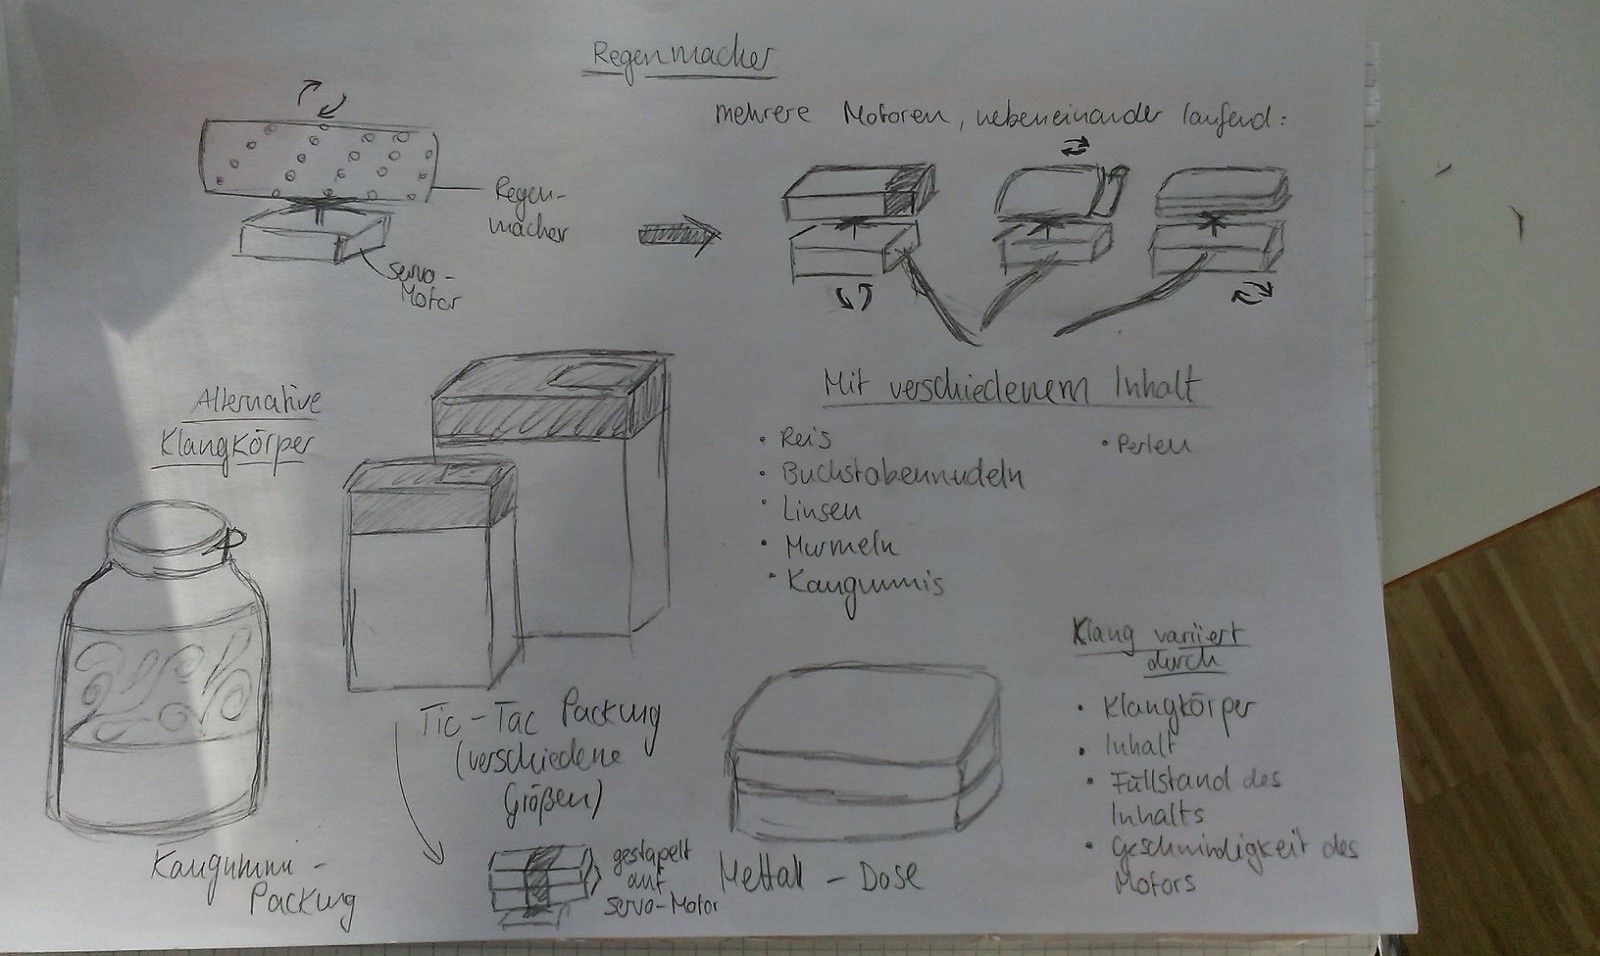 Regenmacher
mehrere Motoren, nebeneinander laufend:
Regen-
macher
Servo-
Motor
Mit verschiedenem Inhalt
• Reis
• Buchstabennudeln
• Linsen
• Murmeln
• Kaugummis
• Perlen
Alternative
Klangkörper
Kaugummi-
Packung
Tic-Tac Packung
(verschiedene
Größen)
gestapelt
auf
Servo-Motor
Mettall-Dose
Klang variiert
durch
• Klangkörper
• Inhalt
• Füllstand des
Inhalts
• Geschwindigkeit des
Motors